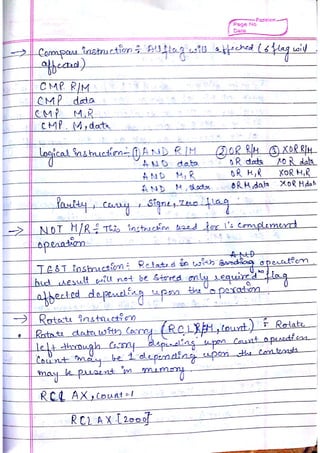 Page No
Date
→ Compare instruction ÷ All flag will affected (6 flag will
affected)
CMP R/M
CMP data
CMP M,R
CMP M,data
Logical instruction- ① AND R/M ② OR R/M ③ XOR R/M
AND data OR data XOR data
AND M,R OR M,R XOR M,R
AND M,data OR M,data XOR M,data
Parity, carry, signe, zero flag
→ NOT M/R ÷ This instruction used for 1's complement
operation
TEST instruction: Related to with AND operation
but result will not be stored only required flag
affected depending upon the operation
→ Rotate instruction
• Rotate data with carry (RCL R/M, count) ÷ Rotate
left through carry depending upon count operation
count may be 1 depending upon the contends
may be present in memory
RCL AX, count=1
RCL AX [2000]